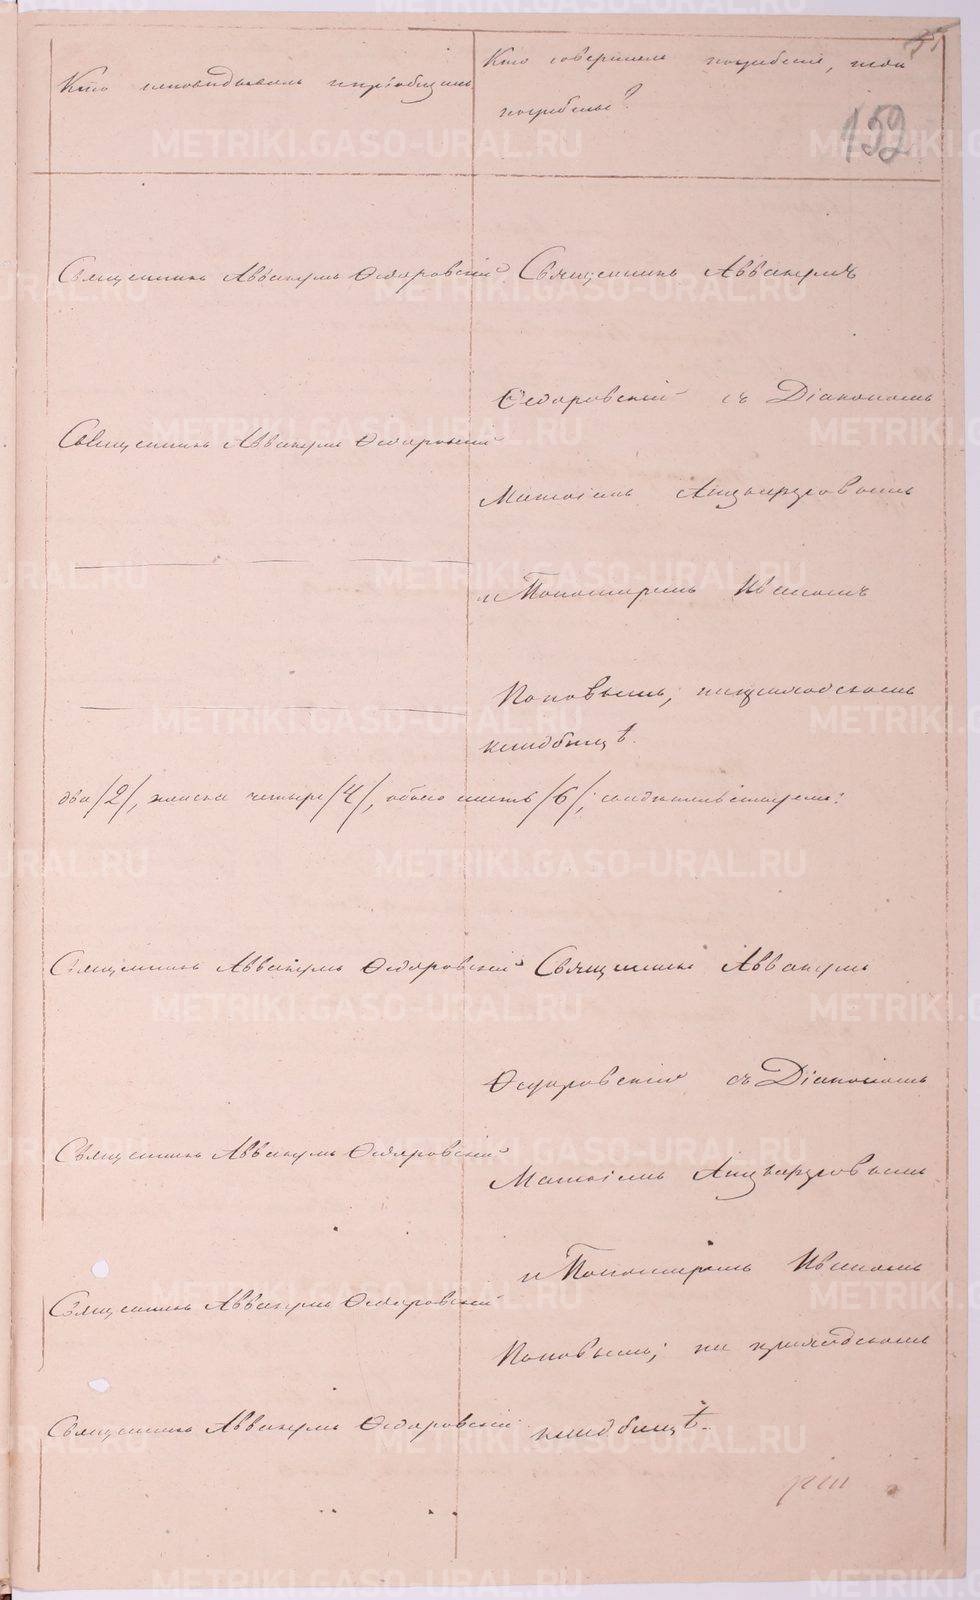 152
Кто исповѣдывалъ и пріобщалъ
Кто совершалъ погребеніе, и гдѣ
погребены?
Священникъ Аввакумъ Ѳедоровскій
Священникъ Аввакумъ
Ѳедоровскій съ Діакономъ
Священникъ Аввакумъ Ѳедоровскій
и Пономаремъ Иваномъ
Поповымъ; на приходскомъ
кладбищѣ.
два /2/, женска четыре /4/, обоего шесть /6/;
Священникъ Аввакумъ Ѳедоровскій
Священникъ Аввакумъ
Ѳедоровскій съ Діакономъ
Священникъ Аввакумъ Ѳедоровскій
и Пономаремъ Иваномъ
Священникъ Аввакумъ Ѳедоровскій
Поповымъ; на приходскомъ
Священникъ Аввакумъ Ѳедоровскій
кладбищѣ.
METRIKI.GASO-URAL.RU